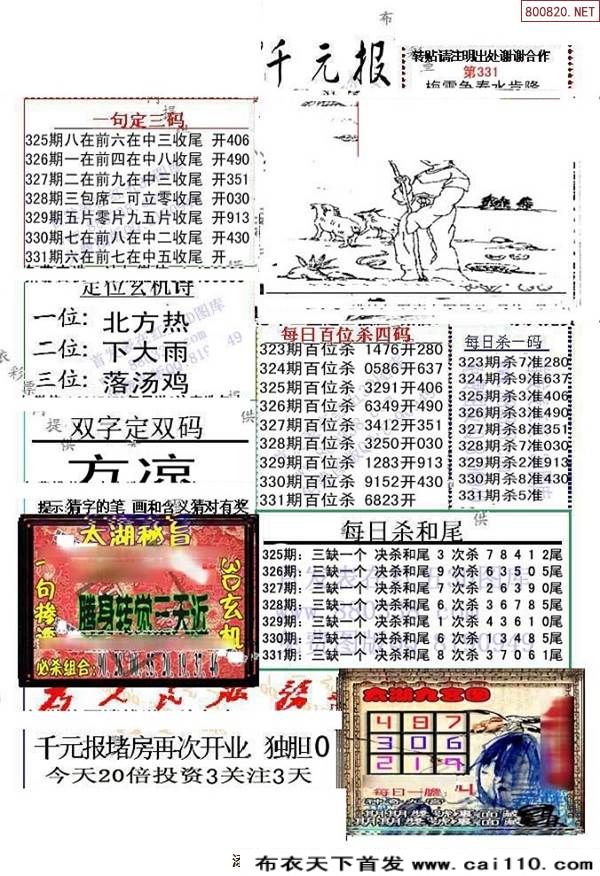 800820.NET
千元报
转贴请注明出处谢谢合作
第331
一句定三码
325期八在前六在中三收尾 开406
326期一在前四在中八收尾 开490
327期二在前九在中三收尾 开351
328期三包席二可立零收尾 开030
329期五片零片九五片收尾 开913
330期七在前八在中二收尾 开430
331期六在前七在中五收尾 开
定位玄机诗
一位: 北方热
二位: 下大雨
三位: 落汤鸡
双字定双码
方凉
提示:猜字的笔 画和含义猜对有奖
每日百位杀四码
323期百位杀 1476开280
324期百位杀 0586开637
325期百位杀 3291开406
326期百位杀 6349开490
327期百位杀 3412开351
328期百位杀 3250开030
329期百位杀 1283开913
330期百位杀 9152开430
331期百位杀 6823开
每日杀一码
323期杀7准280
324期杀9准637
325期杀3准406
326期杀3准490
327期杀8准351
328期杀7准030
329期杀2准913
330期杀8准430
331期杀5准
每日杀和尾
325期: 三缺一个 决杀和尾 3 次杀 7 8 4 1 2尾
326期: 三缺一个 决杀和尾 9 次杀 6 3 5 0 5尾
327期: 三缺一个 决杀和尾 7 次杀 2 6 3 9 0尾
328期: 三缺一个 决杀和尾 2 次杀 3 6 7 8 5尾
329期: 三缺一个 决杀和尾 1 次杀 4 3 6 1 0尾
330期: 三缺一个 决杀和尾 6 次杀 3 9 4 8 5尾
331期: 三缺一个 决杀和尾 8 次杀 3 7 0 6 1尾
太湖秘旨
3D玄机
随身转觉三天近
必杀组合:
太湖九宫图
4 8 7
3 0 6
2 1 9
每日一胆: 4
千元报堵房再次开业 独胆0
今天20倍投资3关注3天
布衣天下首发 www.cai110.com